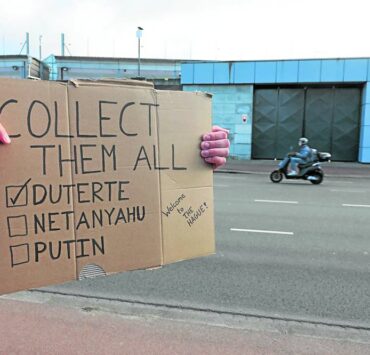 COLLECT
THEM ALL
☑ DUTERTE
☐ NETANYAHU
☐ PUTIN
Welcome to
THE
HAGUE!